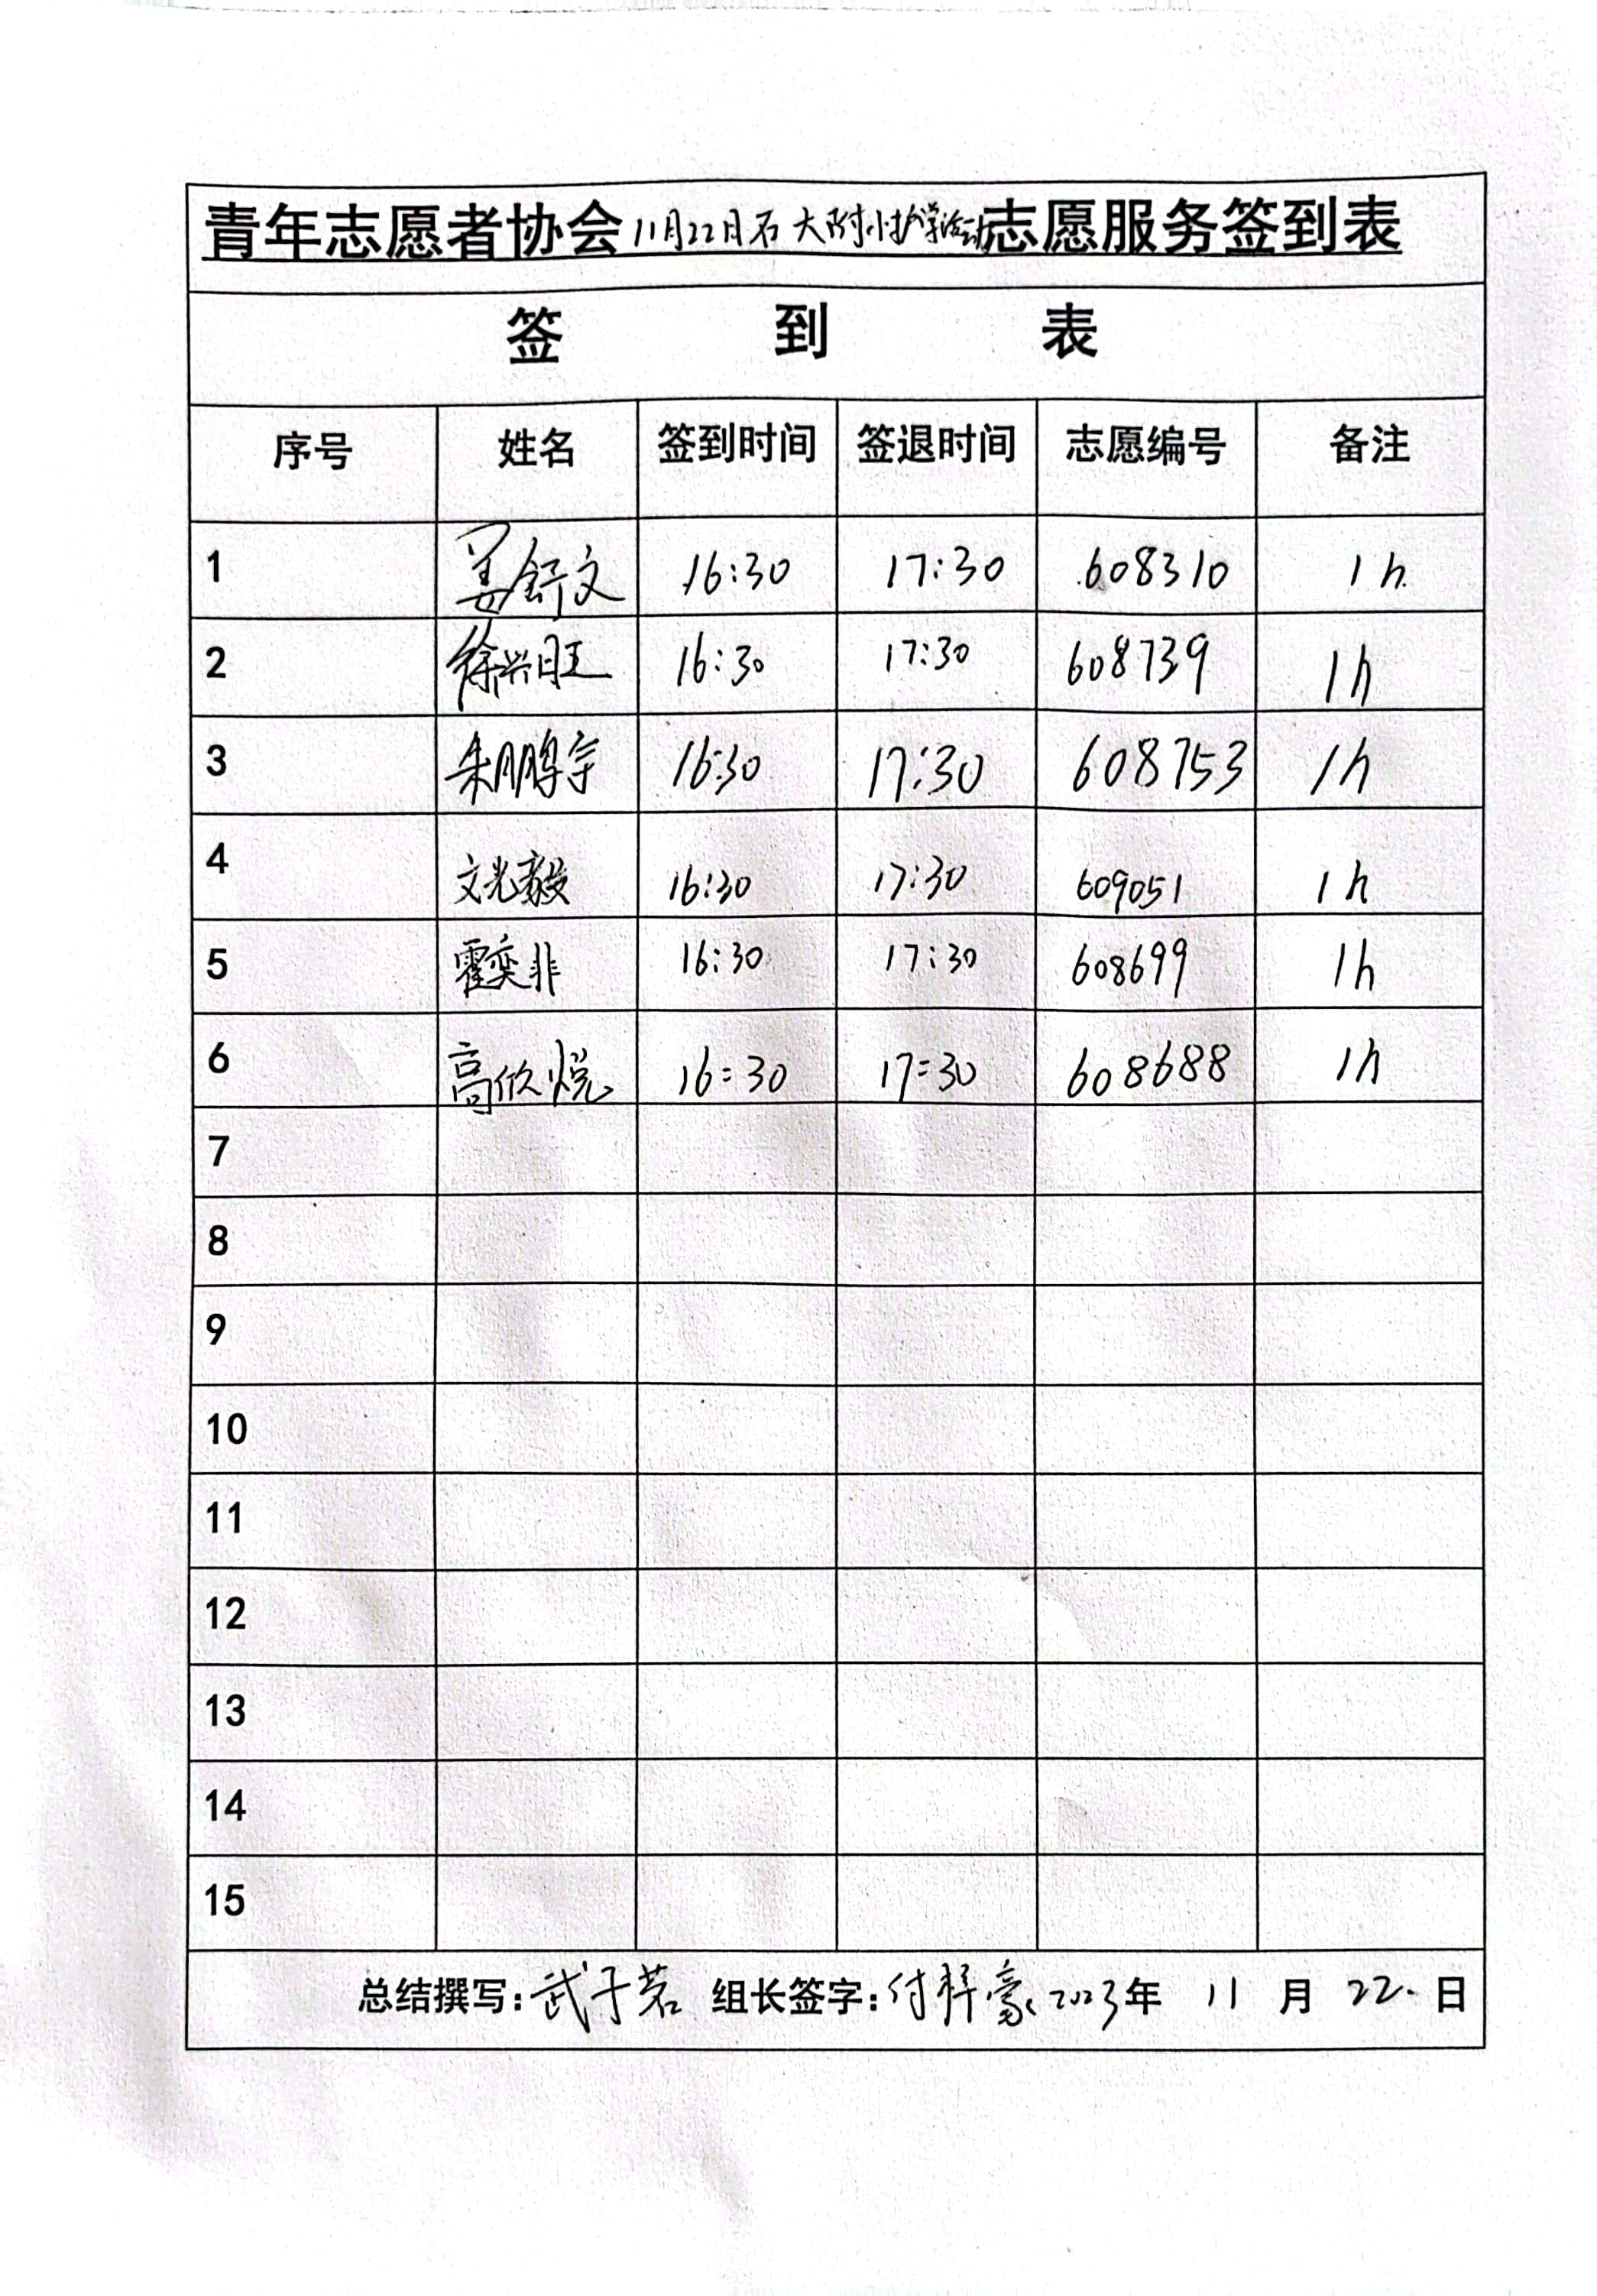 青年志愿者协会11月22日石大附小护学活动志愿服务签到表
签 到 表
序号 姓名 签到时间 签退时间 志愿编号 备注
1 姜舒文 16:30 17:30 608310 1h
2 徐兴旺 16:30 17:30 608739 1h
3 朱鹏宇 16:30 17:30 608753 1h
4 文光毅 16:30 17:30 609051 1h
5 霍奕非 16:30 17:30 608699 1h
6 高欣悦 16:30 17:30 608688 1h
7
8
9
10
11
12
13
14
15
总结撰写:武子茗 组长签字:付梓豪 2023年 11 月 22 日